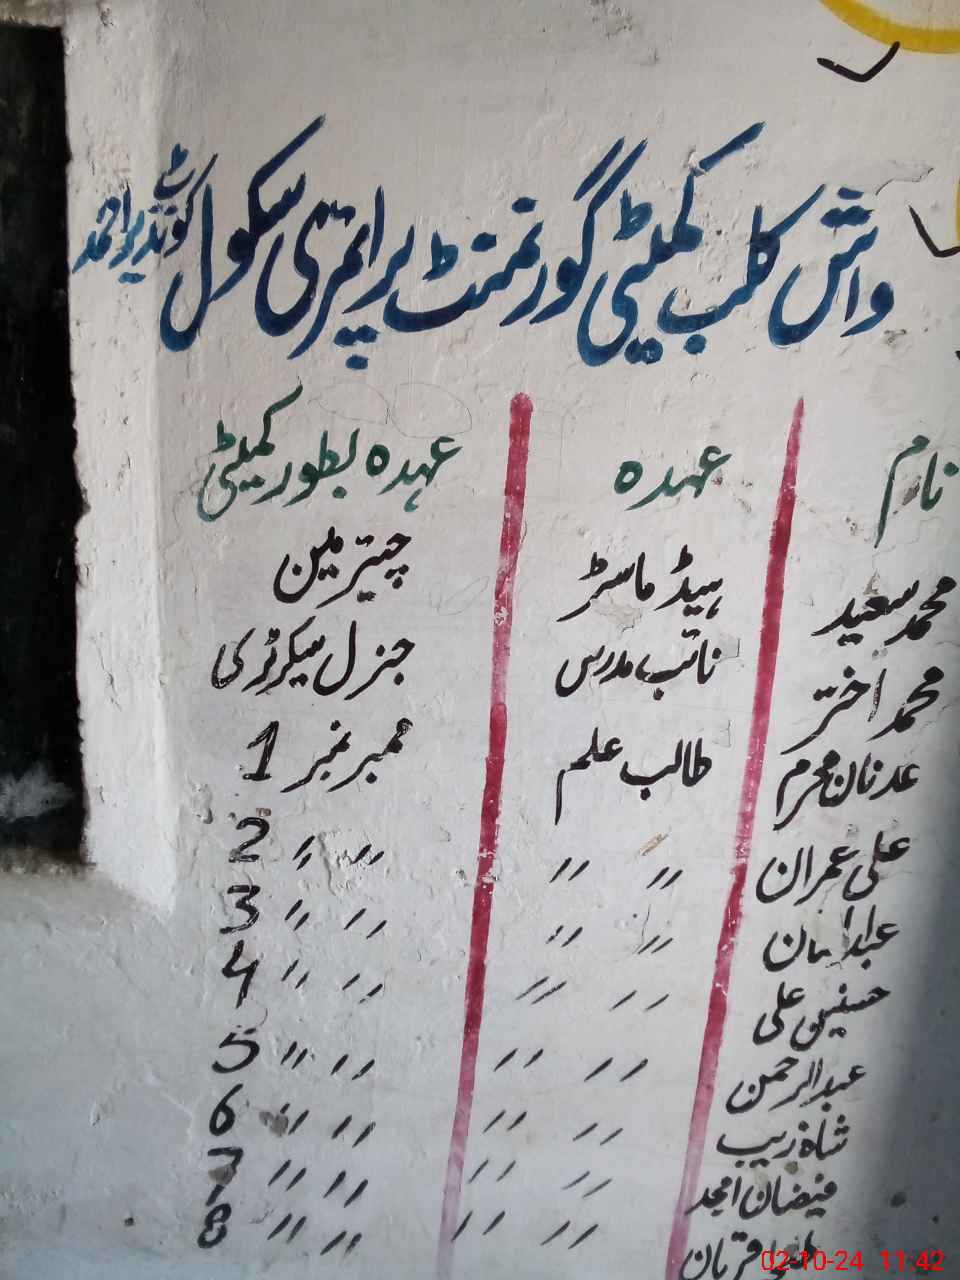 واش کلب کمیٹی گورنمنٹ پرائمری سکول گوٹھ نذیر احمد
نام عہدہ عہدہ بطور کمیٹی
محمد سعید ہیڈ ماسٹر چیئرمین
محمد اختر نائب مدرس جنرل سیکرٹری
عدنان محرم طالب علم ممبر نمبر 1
علی عمران 〃 〃 〃 〃 2
عبدالمنان 〃 〃 〃 〃 3
حسنین علی 〃 〃 〃 〃 4
عبدالرحمن 〃 〃 〃 〃 5
شاہ زیب 〃 〃 〃 〃 6
فیضان امجد 〃 〃 〃 〃 7
قربان 〃 〃 〃 〃 8
02-10-24 11:42